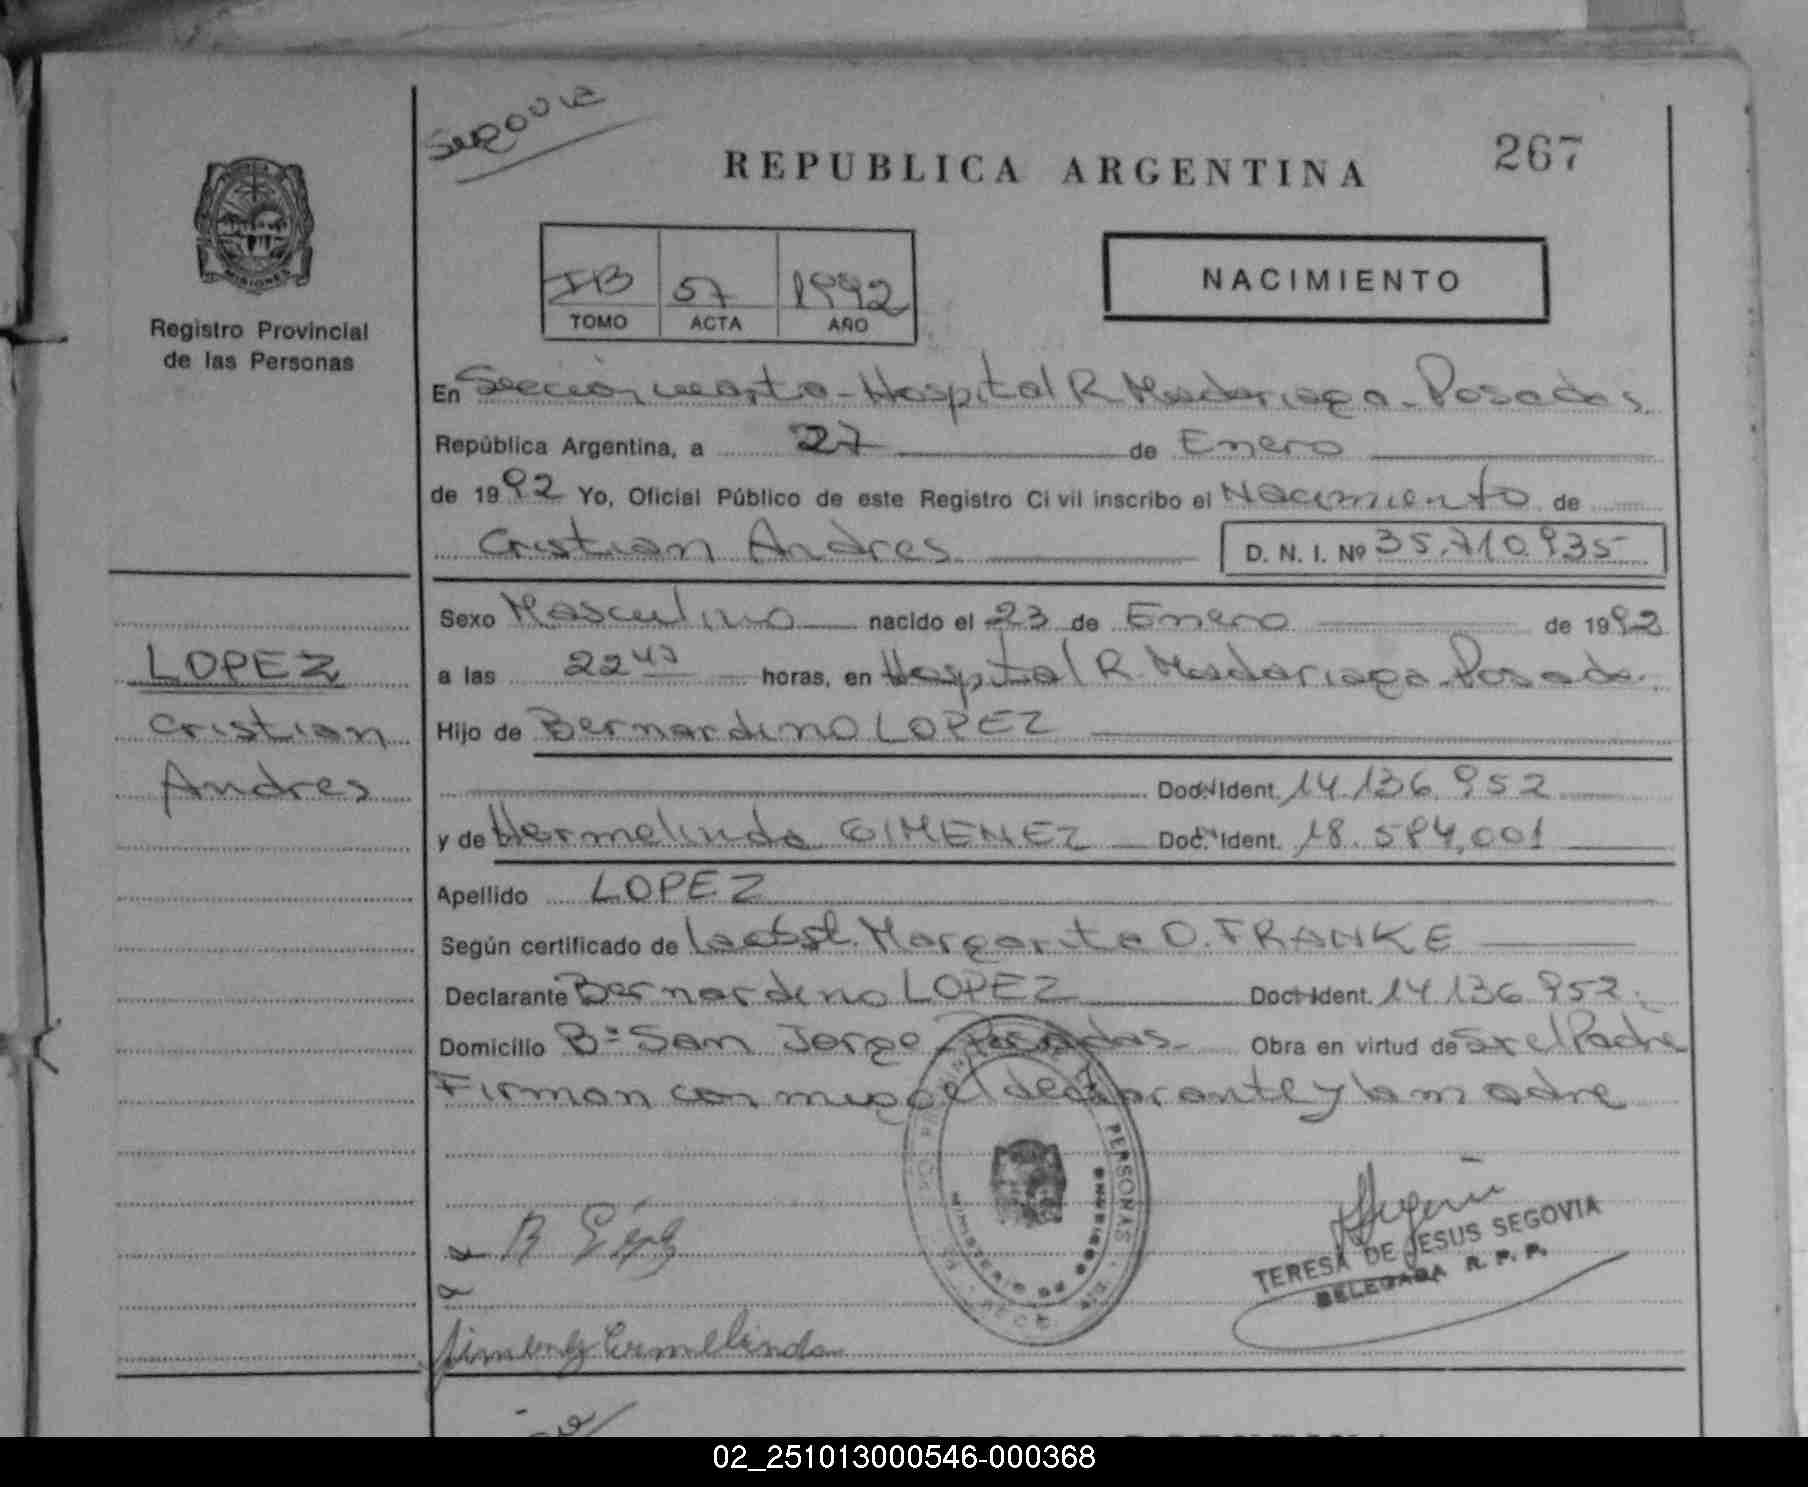 Segovia
REPUBLICA ARGENTINA
267
MISIONES
Registro Provincial
de las Personas
IB 57 1992
TOMO ACTA AÑO
NACIMIENTO
En Sección cuarta - Hospital R. Madariaga - Posadas
República Argentina, a 27 de Enero
de 1992 Yo, Oficial Público de este Registro Civil inscribo el Nacimiento de
Cristian Andres D. N. I. Nº 35.710.935
LOPEZ
Cristian
Andres
Sexo Masculino nacido el 23 de Enero de 1992
a las 22 43 horas, en Hospital R. Madariaga - Posadas
Hijo de Bernardino LOPEZ
Doc. Ident. 14.136.952
y de Hermelinda GIMENEZ Doc. Ident. 18.584.001
Apellido LOPEZ
Según certificado de la obst. Margarita O. FRANKE
Declarante Bernardino LOPEZ Doc. Ident. 14.136.952
Domicilio Bº San Jorge - Posadas - Obra en virtud de ser el Padre
Firman conmigo el declarante y la madre
PERSONAS
MINISTERIO DE GOBIERNO
TERESA DE JESUS SEGOVIA
DELEGADA R. P. P.
Ermelinda
02_251013000546-000368